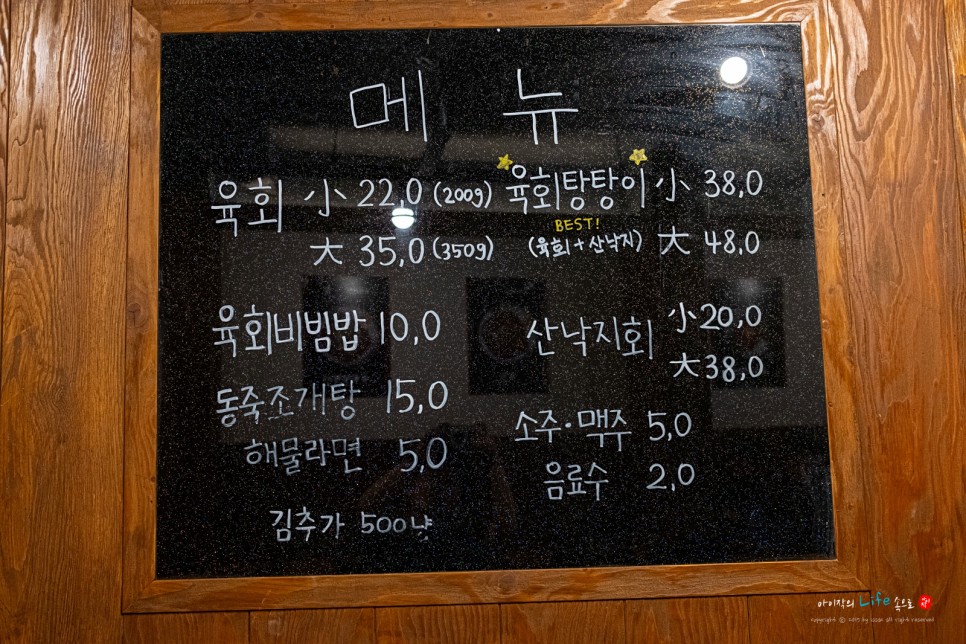 메뉴
육회 小 22,0 (200g)
大 35,0 (350g)
육회비빔밥 10,0
동죽조개탕 15,0
해물라면 5,0
김추가 500냥
육회탕탕이 小 38,0
BEST!
(육회+산낙지) 大 48,0
산낙지회 小 20,0
大 38,0
소주·맥주 5,0
음료수 2,0
아이작의 Life 속으로
copyright ⓒ 2015 by issac all right reserved